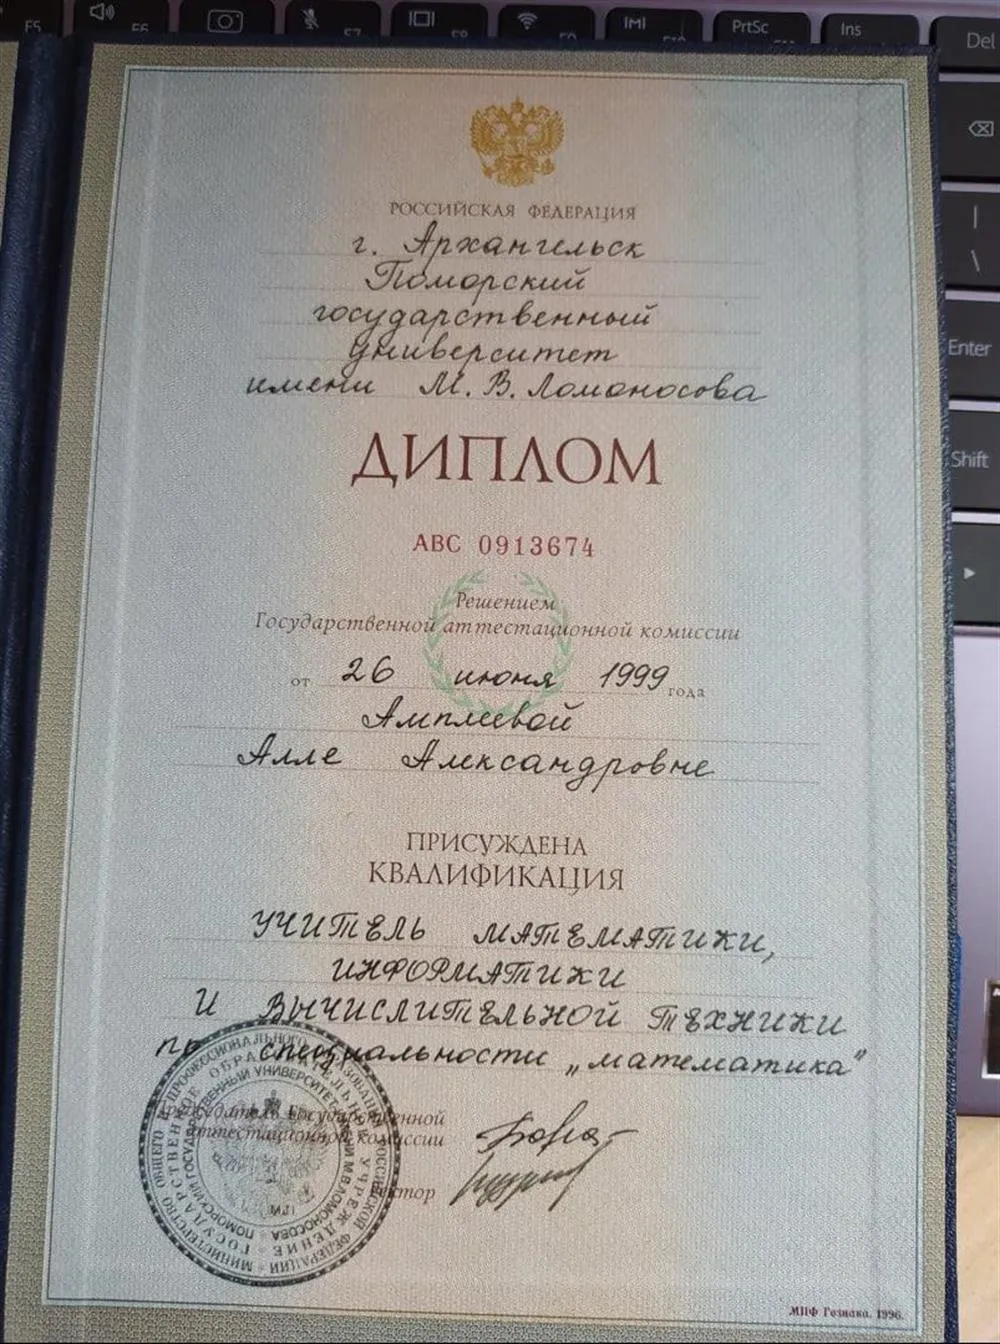 F5
F6
F7
F8
F9
F10
PrtSc
F11
Ins
Del
Enter
Shift
\
РОССИЙСКАЯ ФЕДЕРАЦИЯ
г. Архангельск
Поморский
государственный
университет
имени М. В. Ломоносова
ДИПЛОМ
АВС 0913674
Решением
Государственной аттестационной комиссии
от 26 июня 1999 года
Амплеевой
Алле Александровне
ПРИСУЖДЕНА
КВАЛИФИКАЦИЯ
УЧИТЕЛЬ МАТЕМАТИКИ,
ИНФОРМАТИКИ
И ВЫЧИСЛИТЕЛЬНОЙ ТЕХНИКИ
по специальности „математика"
Председатель Государственной
аттестационной комиссии
Ректор
МИНИСТЕРСТВО ОБЩЕГО И ПРОФЕССИОНАЛЬНОГО ОБРАЗОВАНИЯ РОССИЙСКОЙ ФЕДЕРАЦИИ
ГОСУДАРСТВЕННОЕ ОБРАЗОВАТЕЛЬНОЕ УЧРЕЖДЕНИЕ
ПОМОРСКИЙ ГОСУДАРСТВЕННЫЙ УНИВЕРСИТЕТ ИМЕНИ М.В.ЛОМОНОСОВА
МПФ Гознака. 1996.